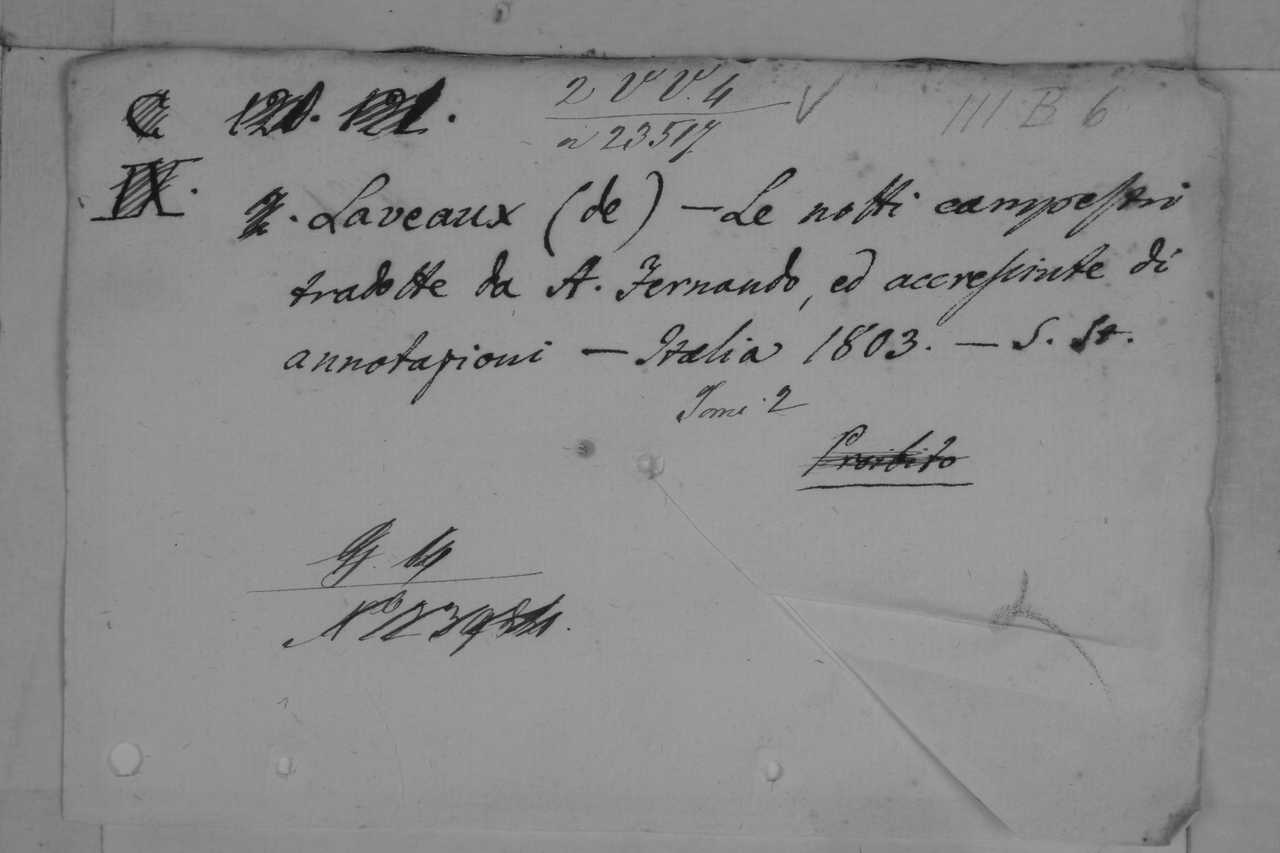 C 120. 121. 2 VV. 4 V III B 6
n 23517
IX.
Laveaux (de) — Le notti campestri
tradotte da A. Fernando, ed accresciute di
annotazioni — Italia 1803. — S. St.
Tomi 2
Proibito